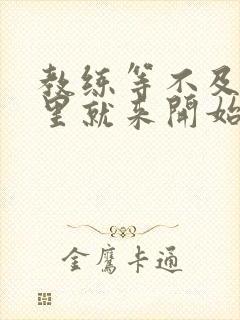 教练等不及
里就来开始
金鹰卡通